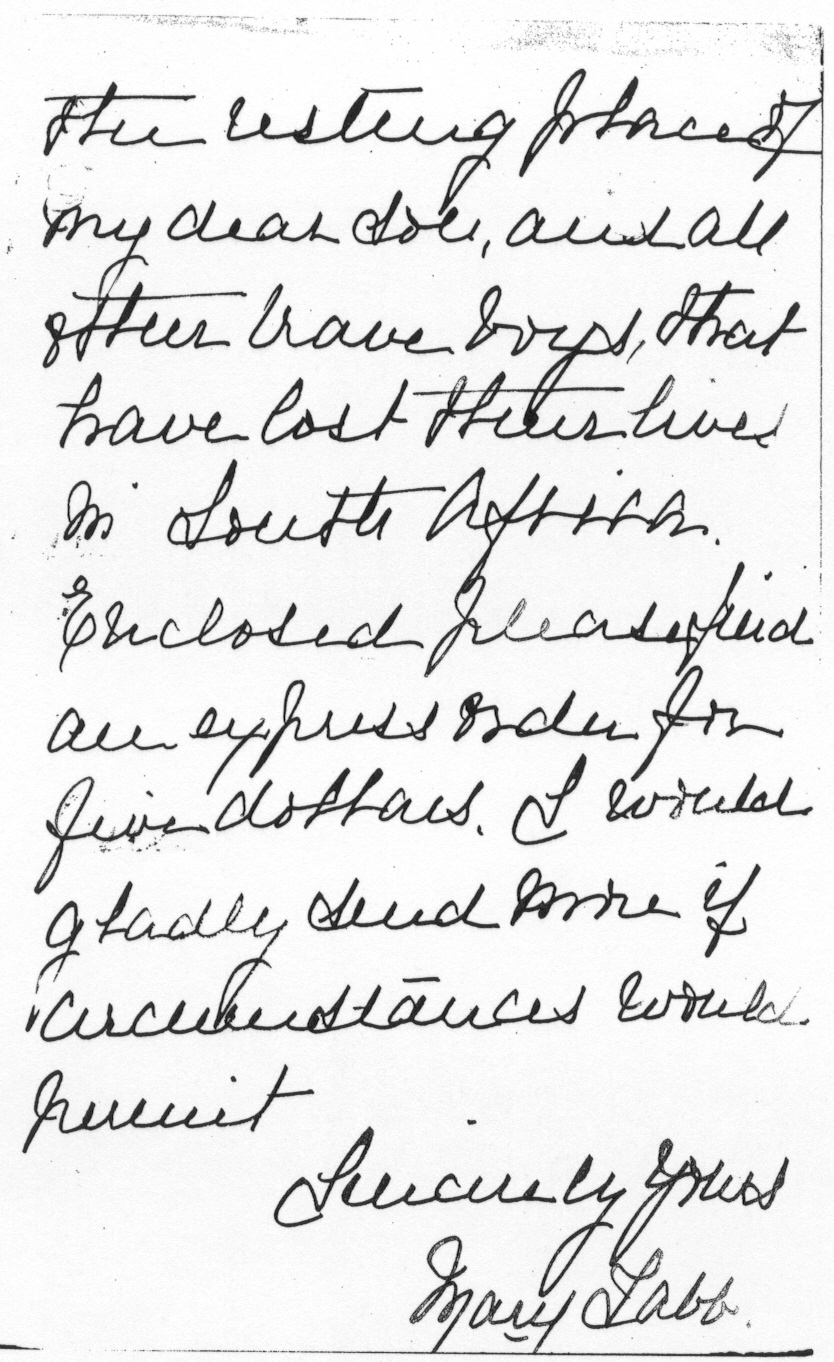 the resting place of
my dear son, and all
other brave boys, that
have lost their lives
in South Africa.
Enclosed please find
an express order for
five dollars. I would
gladly send more if
circumstances would
permit
Sincerely yours
Mary Tabb.